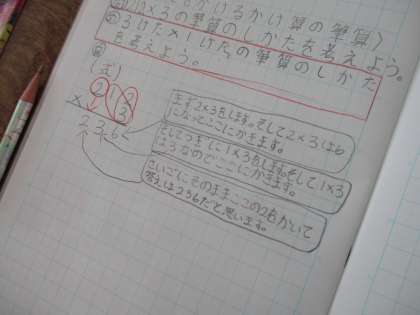 かけるかけ算の筆算〉
×3の筆算のしかたを考えよう。
3けた×1けたの筆算のしかた
を考えよう。
(式)
212
× 3
236
まず2×3をします。そして2×3は6
になってここにかきます。
そしてつぎに1×3をします。そして1×3
は3なのでここにかきます。
さいごにそのままここの2をかいて
答えは236だと思います。